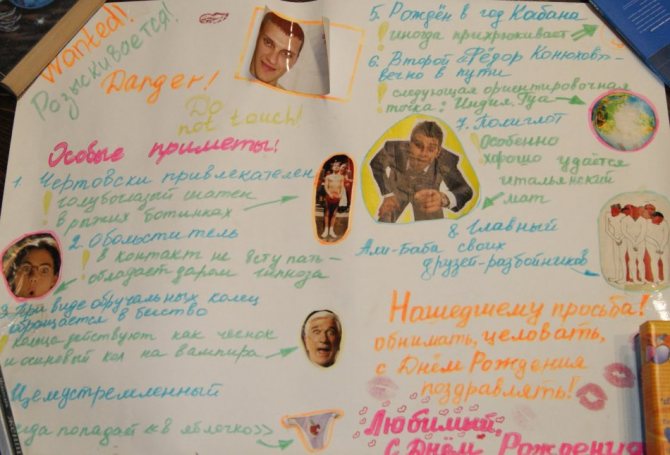 Wanted!
Разыскивается!
Danger!
Do
not touch!
Особые приметы!
1. Чертовски привлекателен
! голубоглазый шатен
в рыжих ботинках
2. Обольститель
! в контакт не вступать –
обладает даром гипноза
3. При виде обручальных колец
обращается в бегство
! Кольца действуют как чеснок
и осиновый кол на вампира
Целеустремленный
попадает «в яблочко»
5. Рождён в год Кабана
! иногда прихрюкивает
6. Второй «Фёдор Конюхов» –
вечно в пути
! следующая ориентировочная
точка: Индия, Гуа
7. Полиглот
! Особенно
хорошо удаётся
итальянский
мат
8. Главный
Али-Баба своих
друзей-разбойников
Нашедшему просьба!
обнимать, целовать,
с Днём Рождения
поздравлять!
Любимый,
с Днём Рождения